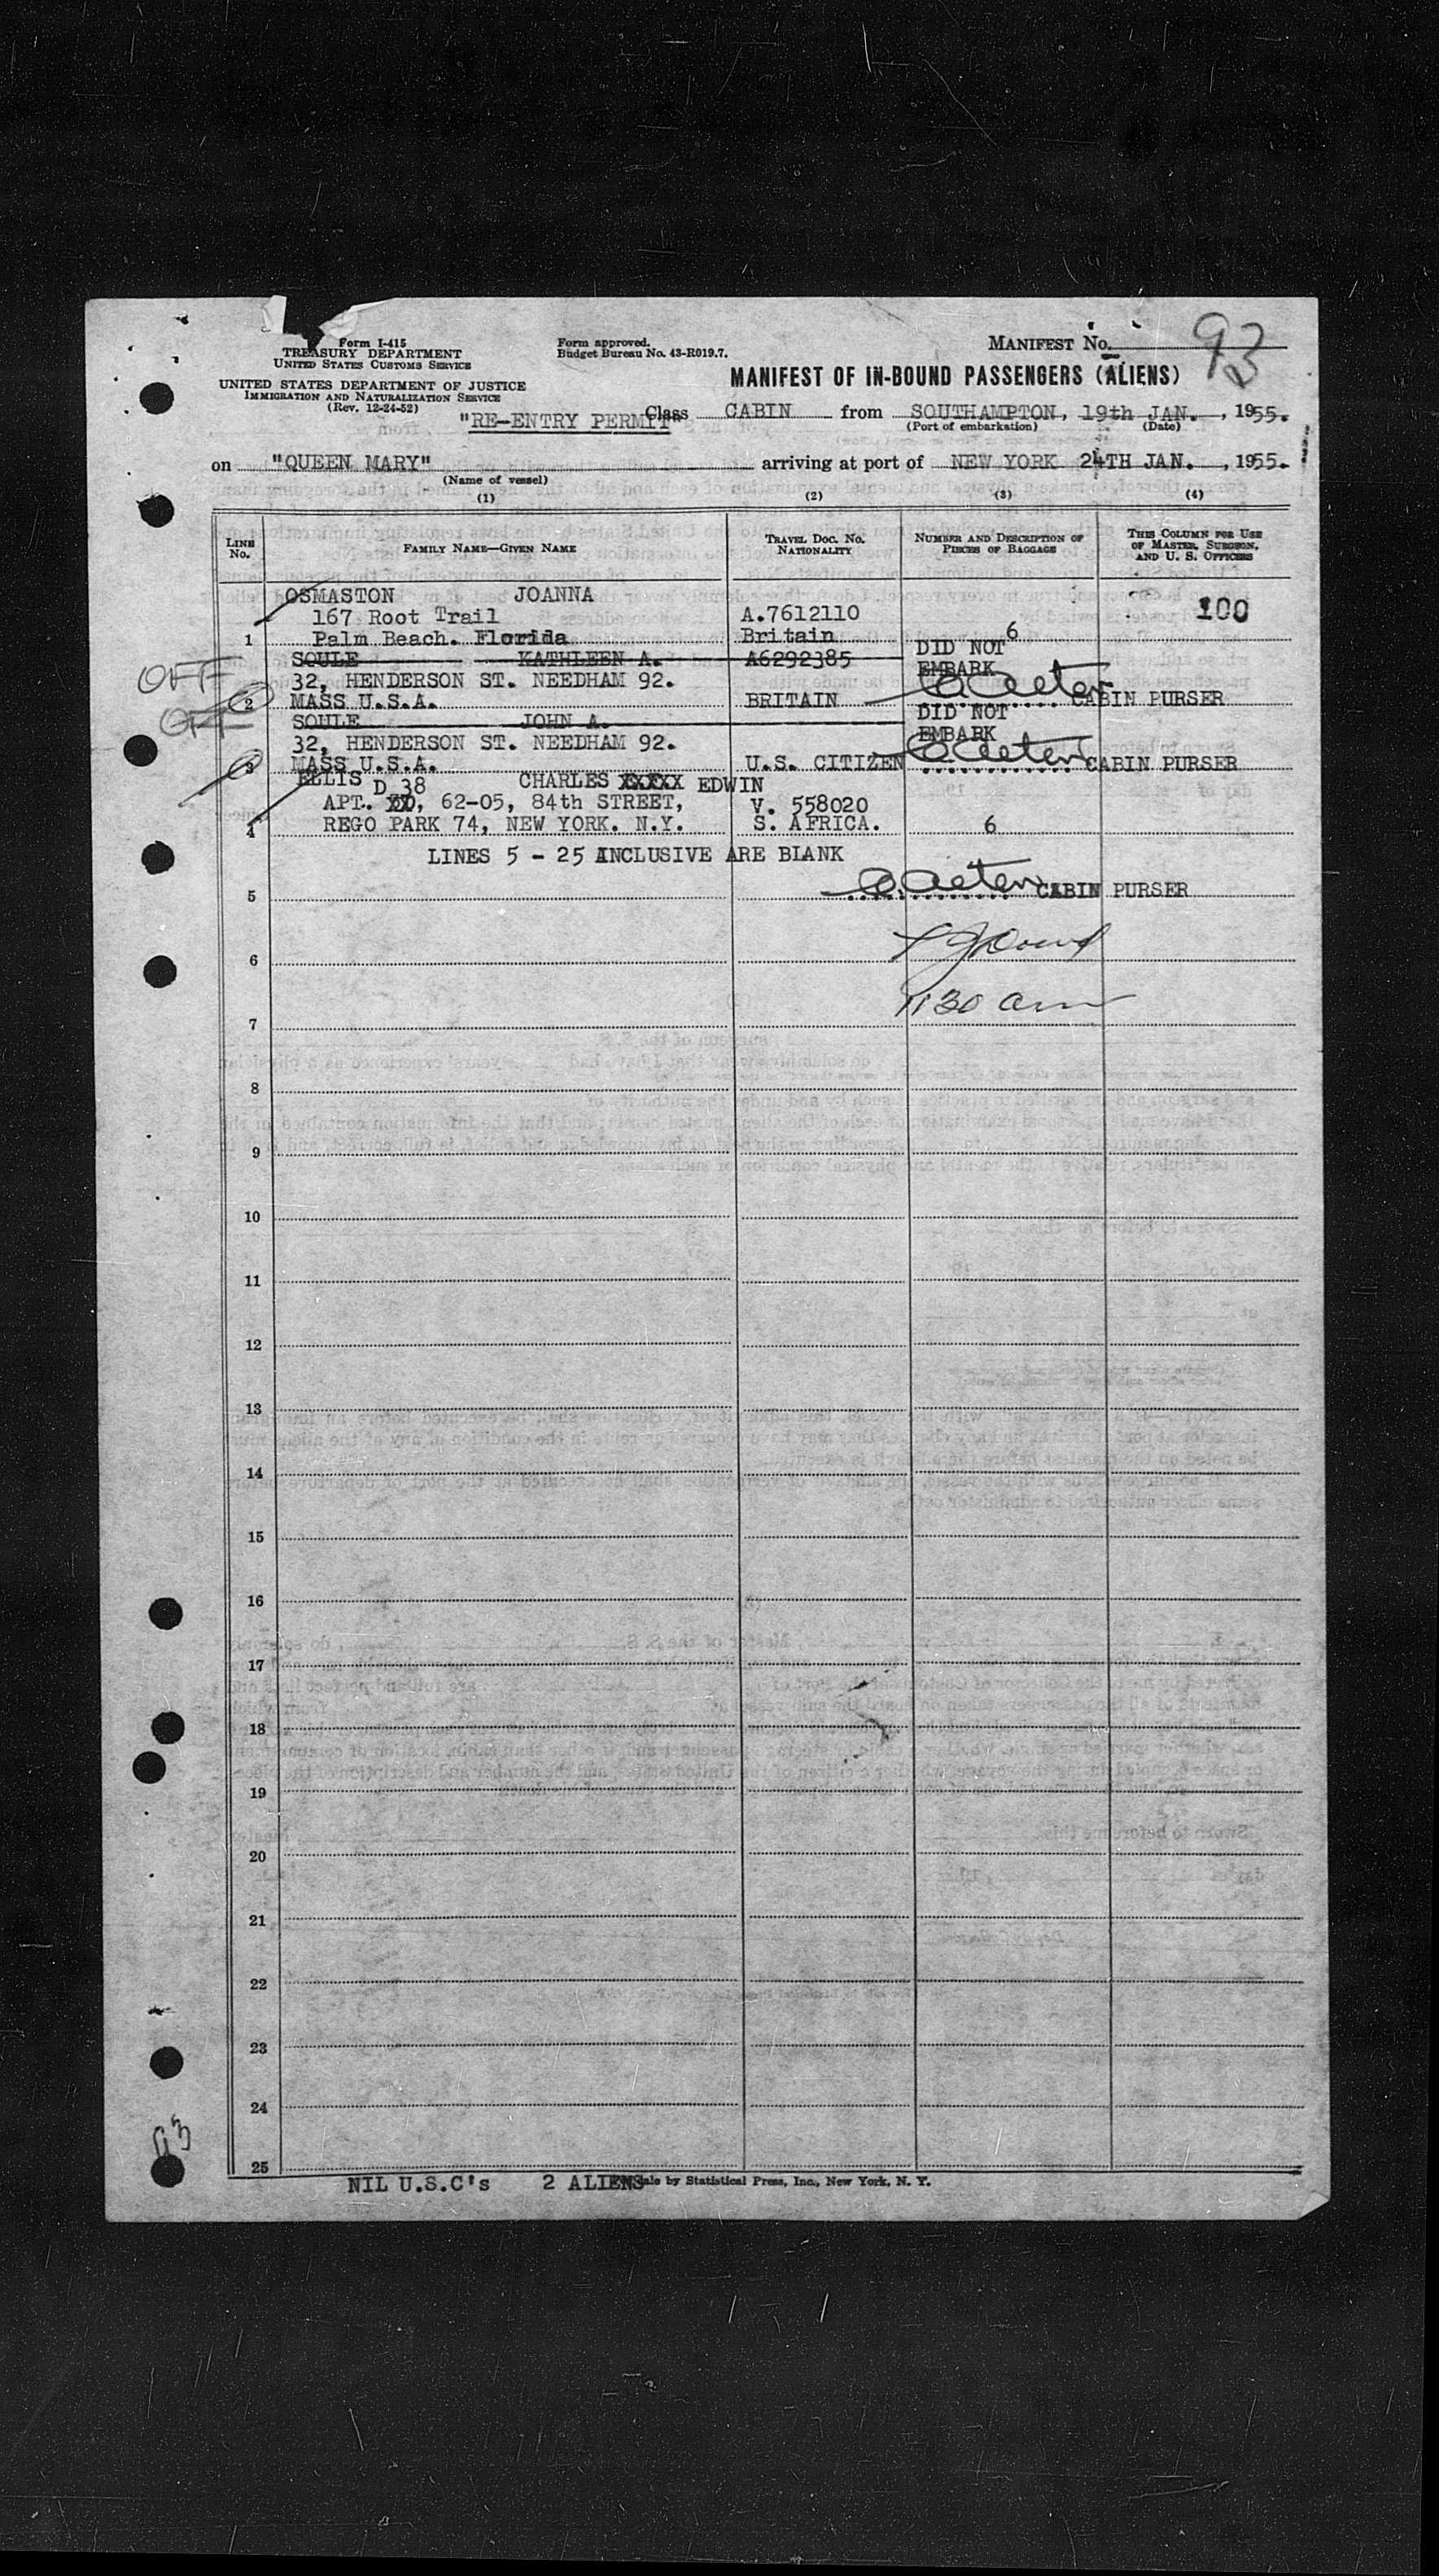 Form I-415
TREASURY DEPARTMENT
UNITED STATES CUSTOMS SERVICE
UNITED STATES DEPARTMENT OF JUSTICE
IMMIGRATION AND NATURALIZATION SERVICE
(Rev. 12-24-52)
Form approved.
Budget Bureau No. 43-R019.7.
MANIFEST No. 93
MANIFEST OF IN-BOUND PASSENGERS (ALIENS)
"RE-ENTRY PERMIT" Class CABIN from SOUTHAMPTON, 19th JAN., 1955.
(Port of embarkation) (Date)
on "QUEEN MARY" arriving at port of NEW YORK 24TH JAN., 1955.
(Name of vessel)
(1) (2) (3) (4)
LINE No. FAMILY NAME—GIVEN NAME TRAVEL DOC. NO. NATIONALITY NUMBER AND DESCRIPTION OF PIECES OF BAGGAGE THIS COLUMN FOR USE OF MASTER, SURGEON, AND U. S. OFFICERS
OSMASTON JOANNA
167 Root Trail A.7612110 100
1 Palm Beach. Florida Britain 6
SOULE KATHLEEN A. A6292385 DID NOT
OFF 32, HENDERSON ST. NEEDHAM 92. EMBARK
2 MASS U.S.A. BRITAIN CABIN PURSER
OFF SOULE JOHN A. DID NOT
32, HENDERSON ST. NEEDHAM 92. EMBARK
3 MASS U.S.A. U.S. CITIZEN CABIN PURSER
ELLIS CHARLES XXXXX EDWIN
D 38
APT. XX, 62-05, 84th STREET, V. 558020
4 REGO PARK 74, NEW YORK. N.Y. S. AFRICA. 6
LINES 5 - 25 INCLUSIVE ARE BLANK
5 CABIN PURSER
6
7 1130 am
8
9
10
11
12
13
14
15
16
17
18
19
20
21
22
23
24
93
25
NIL U.S.C's 2 ALIENS sale by Statistical Press, Inc., New York, N. Y.